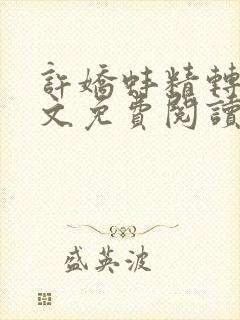 許嬌蚌精轉
文免費閱讀
盛英波